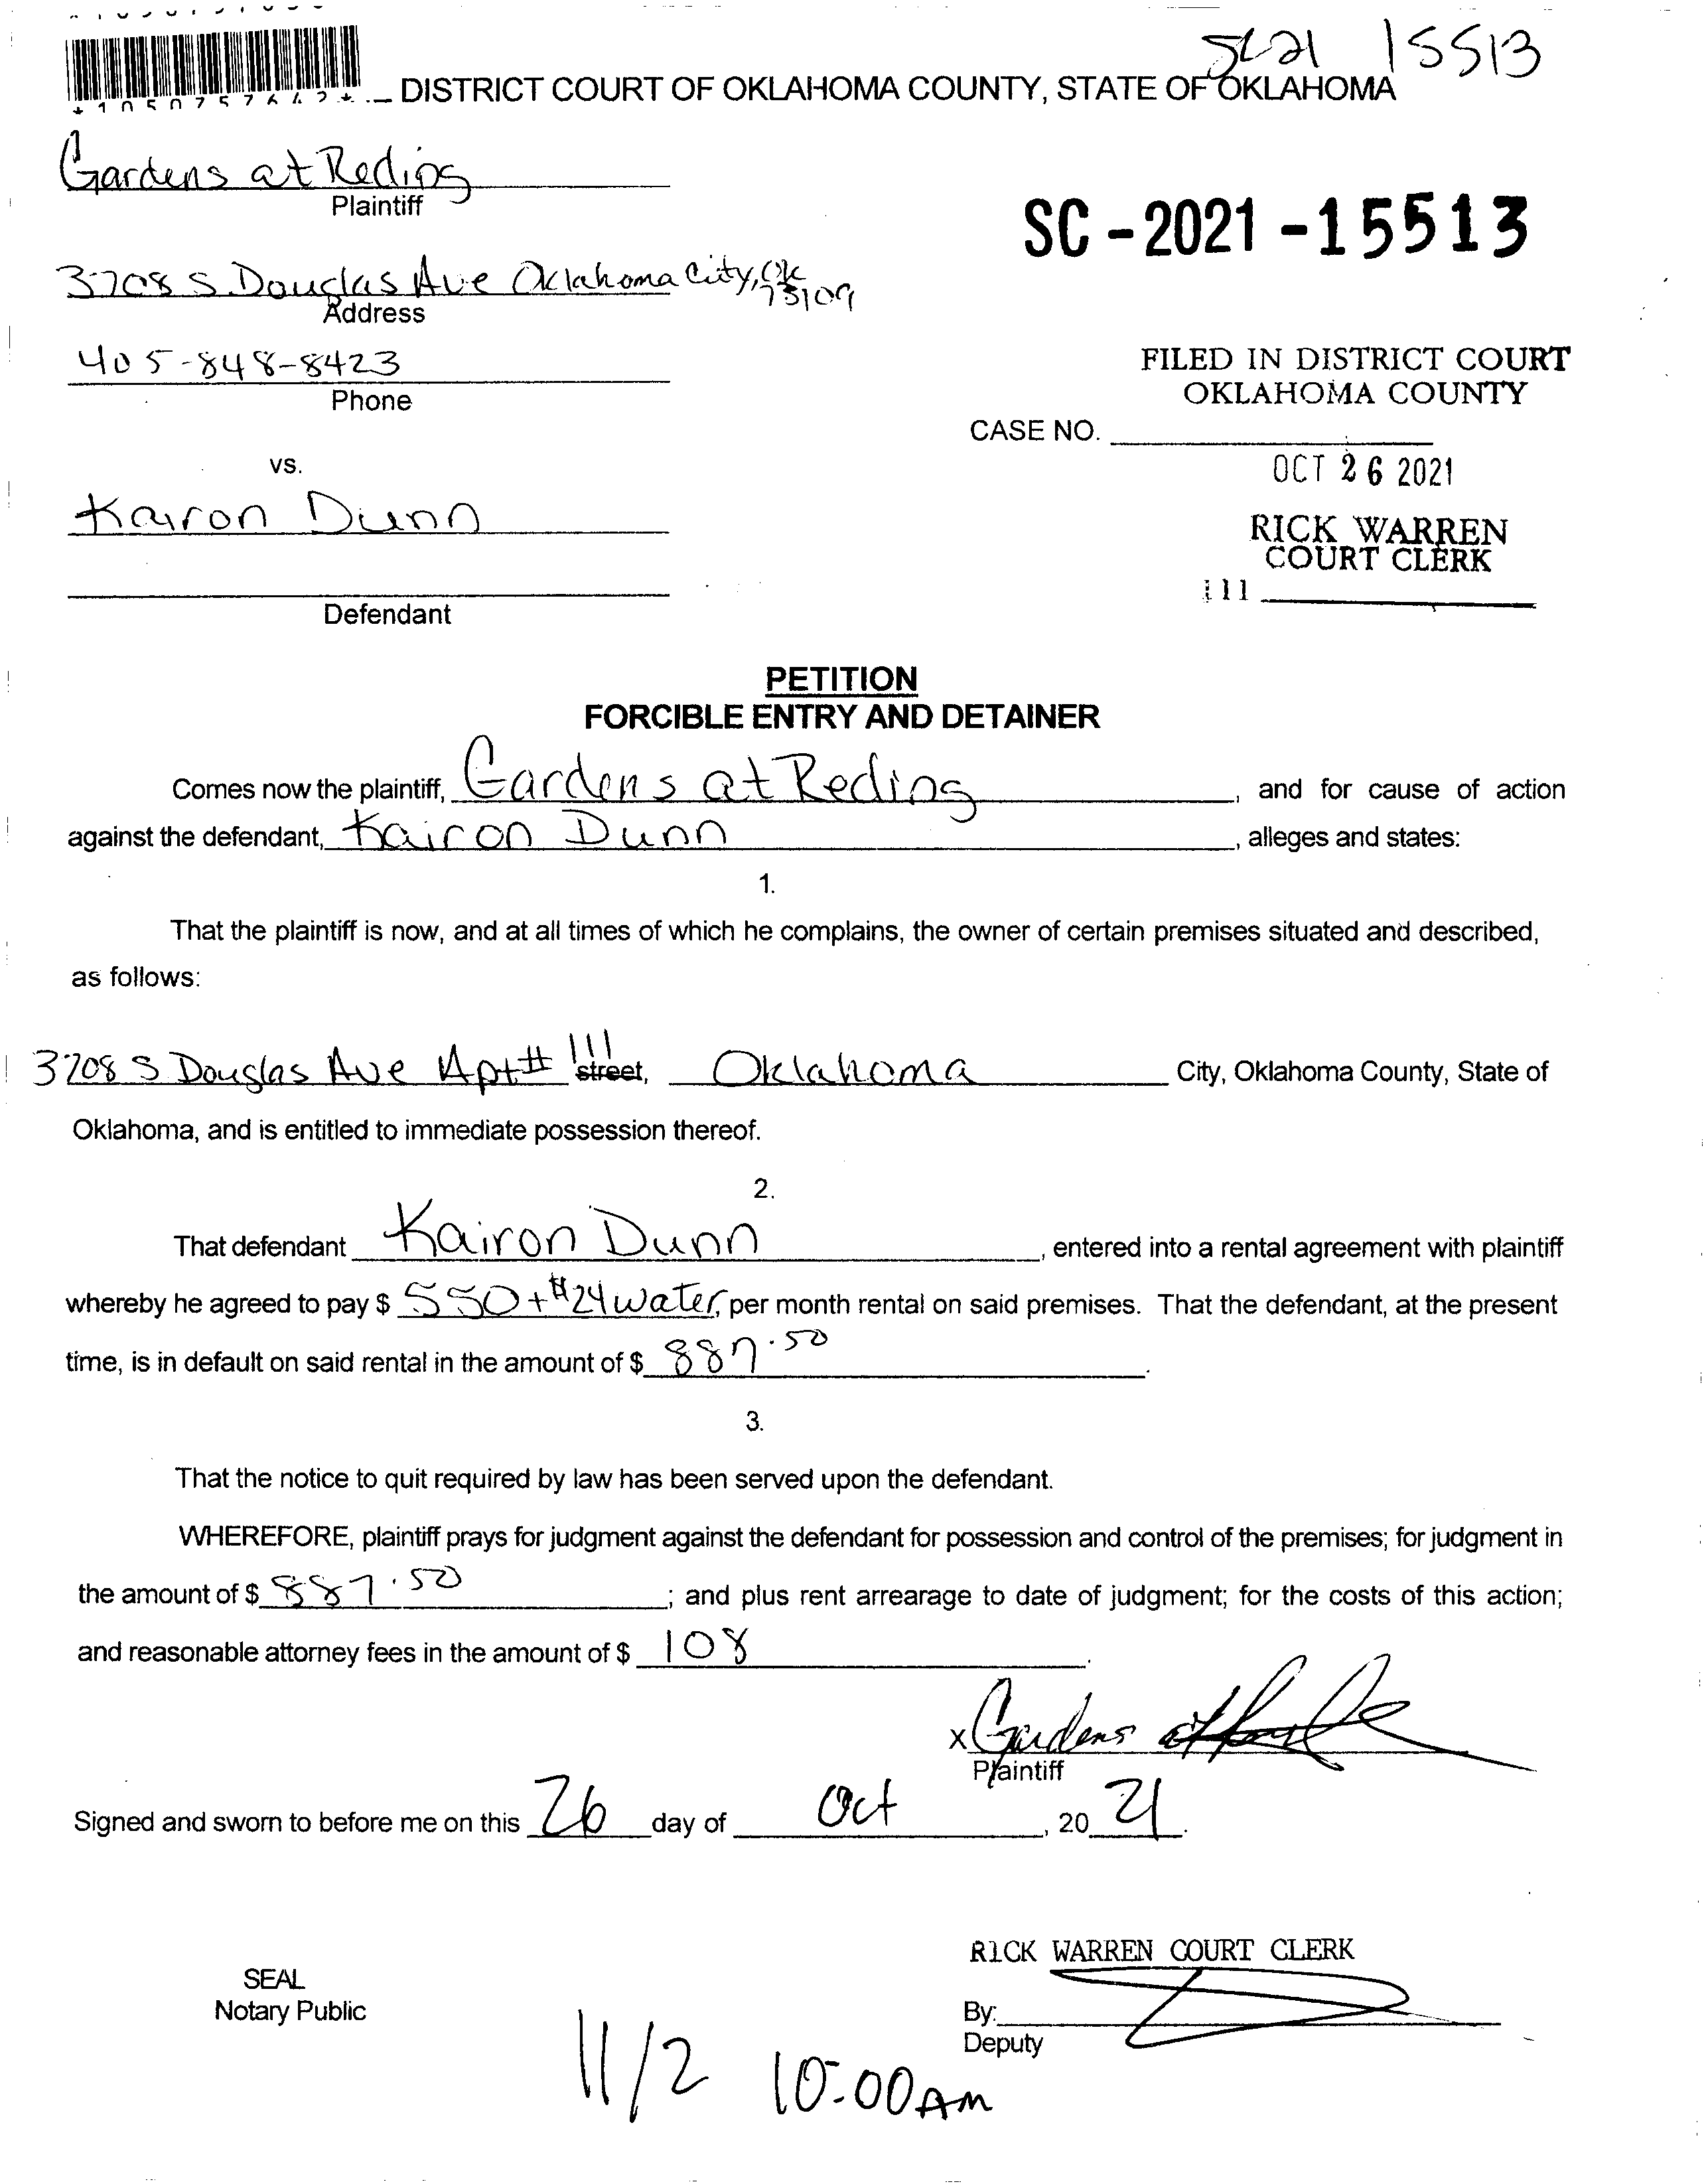 SC21 15513
*1050757642*
DISTRICT COURT OF OKLAHOMA COUNTY, STATE OF OKLAHOMA
Gardens at Reding
Plaintiff
SC-2021-15513
3708 S. Douglas Ave Oklahoma City, Ok 73109
Address
405-848-8423
Phone
FILED IN DISTRICT COURT
OKLAHOMA COUNTY
CASE NO.
OCT 26 2021
vs.
Kairon Dunn
RICK WARREN
COURT CLERK
111
Defendant
PETITION
FORCIBLE ENTRY AND DETAINER
Comes now the plaintiff, Gardens at Reding, and for cause of action
against the defendant, Kairon Dunn, alleges and states:
1.
That the plaintiff is now, and at all times of which he complains, the owner of certain premises situated and described,
as follows:
3708 S Douglas Ave Apt# 111 street, Oklahoma City, Oklahoma County, State of
Oklahoma, and is entitled to immediate possession thereof.
2.
That defendant Kairon Dunn, entered into a rental agreement with plaintiff
whereby he agreed to pay $ 550+$24 water, per month rental on said premises. That the defendant, at the present
time, is in default on said rental in the amount of $ 887.50.
3.
That the notice to quit required by law has been served upon the defendant.
WHEREFORE, plaintiff prays for judgment against the defendant for possession and control of the premises; for judgment in
the amount of $ 887.50; and plus rent arrearage to date of judgment; for the costs of this action;
and reasonable attorney fees in the amount of $ 108.
x Gardens at
Plaintiff
Signed and sworn to before me on this 26 day of Oct, 20 21.
RICK WARREN COURT CLERK
SEAL
Notary Public
By:
Deputy
11/2 10:00 AM